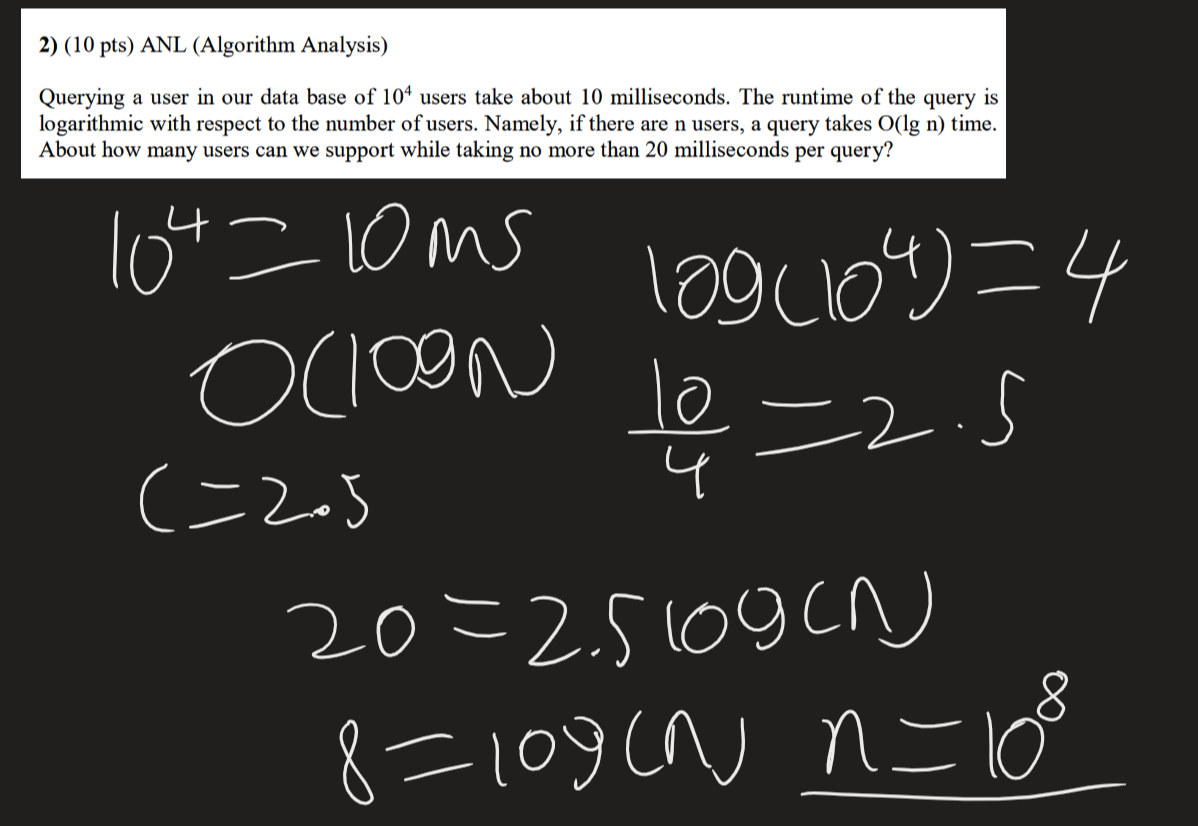 2) (10 pts) ANL (Algorithm Analysis)
Querying a user in our data base of 10⁴ users take about 10 milliseconds. The runtime of the query is
logarithmic with respect to the number of users. Namely, if there are n users, a query takes O(lg n) time.
About how many users can we support while taking no more than 20 milliseconds per query?
10⁴ = 10 ms
log(10⁴) = 4
O(log N)
10/4 = 2.5
C = 2.5
20 = 2.5 log(N)
8 = log(N) n = 10⁸